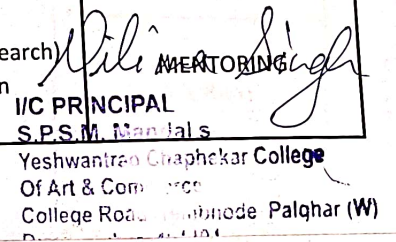 earch)
MENTORING
n
I/C PRINCIPAL
S.P.S.M. Mandal s
Yeshwantrao Chaphekar College
Of Art & Com
College Roa Palghar (W)